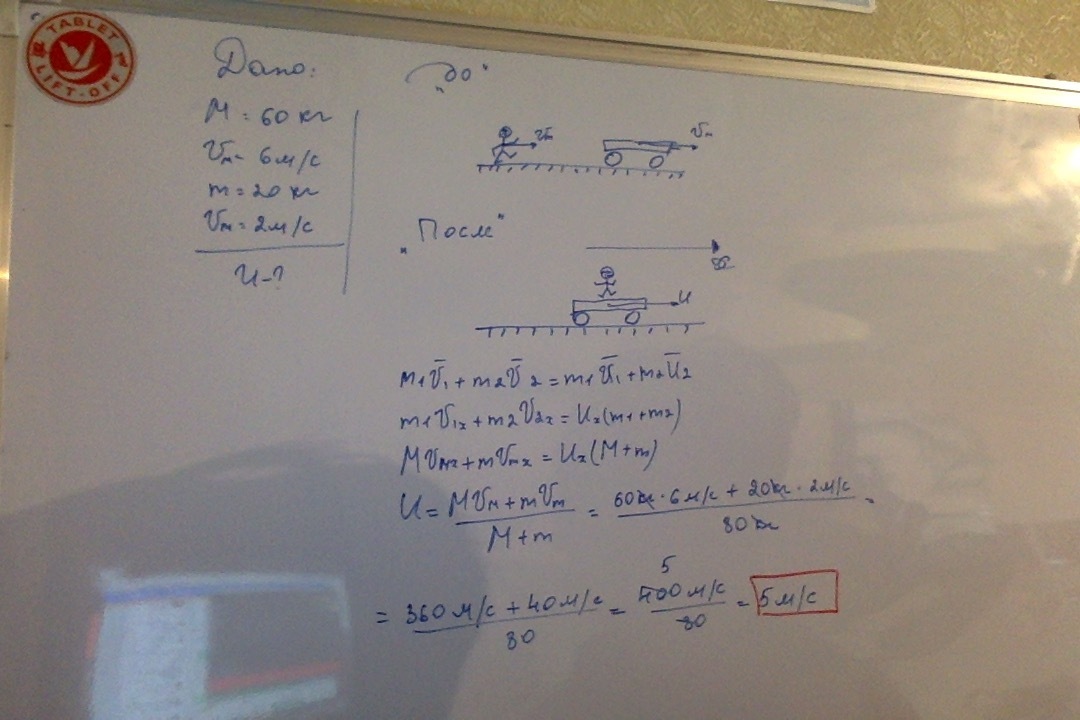 TABLET
LIFT-OFF
Дано:
M = 60 кг
V_M = 6 м/с
m = 20 кг
V_m = 2 м/с
U - ?
„до"
V_M
V_m
„После"
U
m₁V̄₁ + m₂V̄₂ = m₁Ū₁ + m₂Ū₂
m₁V₁ₓ + m₂V₂ₓ = Uₓ(m₁+m₂)
MV_Mx + mV_mx = Uₓ(M+m)
U = (MV_M + mV_m)/(M+m) = (60кг · 6м/с + 20кг · 2м/с)/(80кг) =
= (360 м/с + 40 м/с)/80 = 5 400 м/с / 80 = 5 м/с